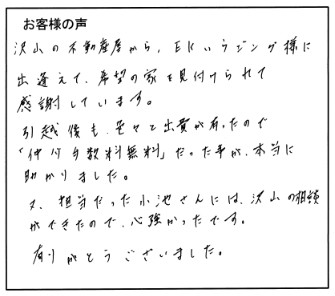 お客様の声
沢山の不動産屋から、EKハウジング様に
出逢えて、希望の家を見付けられて
感謝しています。
引越後も、色々と出費が有ったので
「仲介手数料無料」だった事が、本当に
助かりました。
又、担当だった小池さんには、沢山の相談
ができたので、心強かったです。
有りがとうございました。